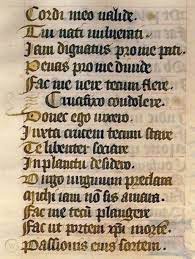 Cordi meo valide.
Tui nati vulnerati.
Iam dignatus pro me pati.
Penas pro me diuide
Fac me vere tecum flere.
Crucifixo condolere.
Donec ego vixero
Iuxta crucem tecum stare
Te libenter sociare
In planctu desidero.
Uirgo virginum preclara
Michi iam nō sis amara.
Fac me tecū plangere
Fac ut portem xpi mortē.
Passionis eius sortem.